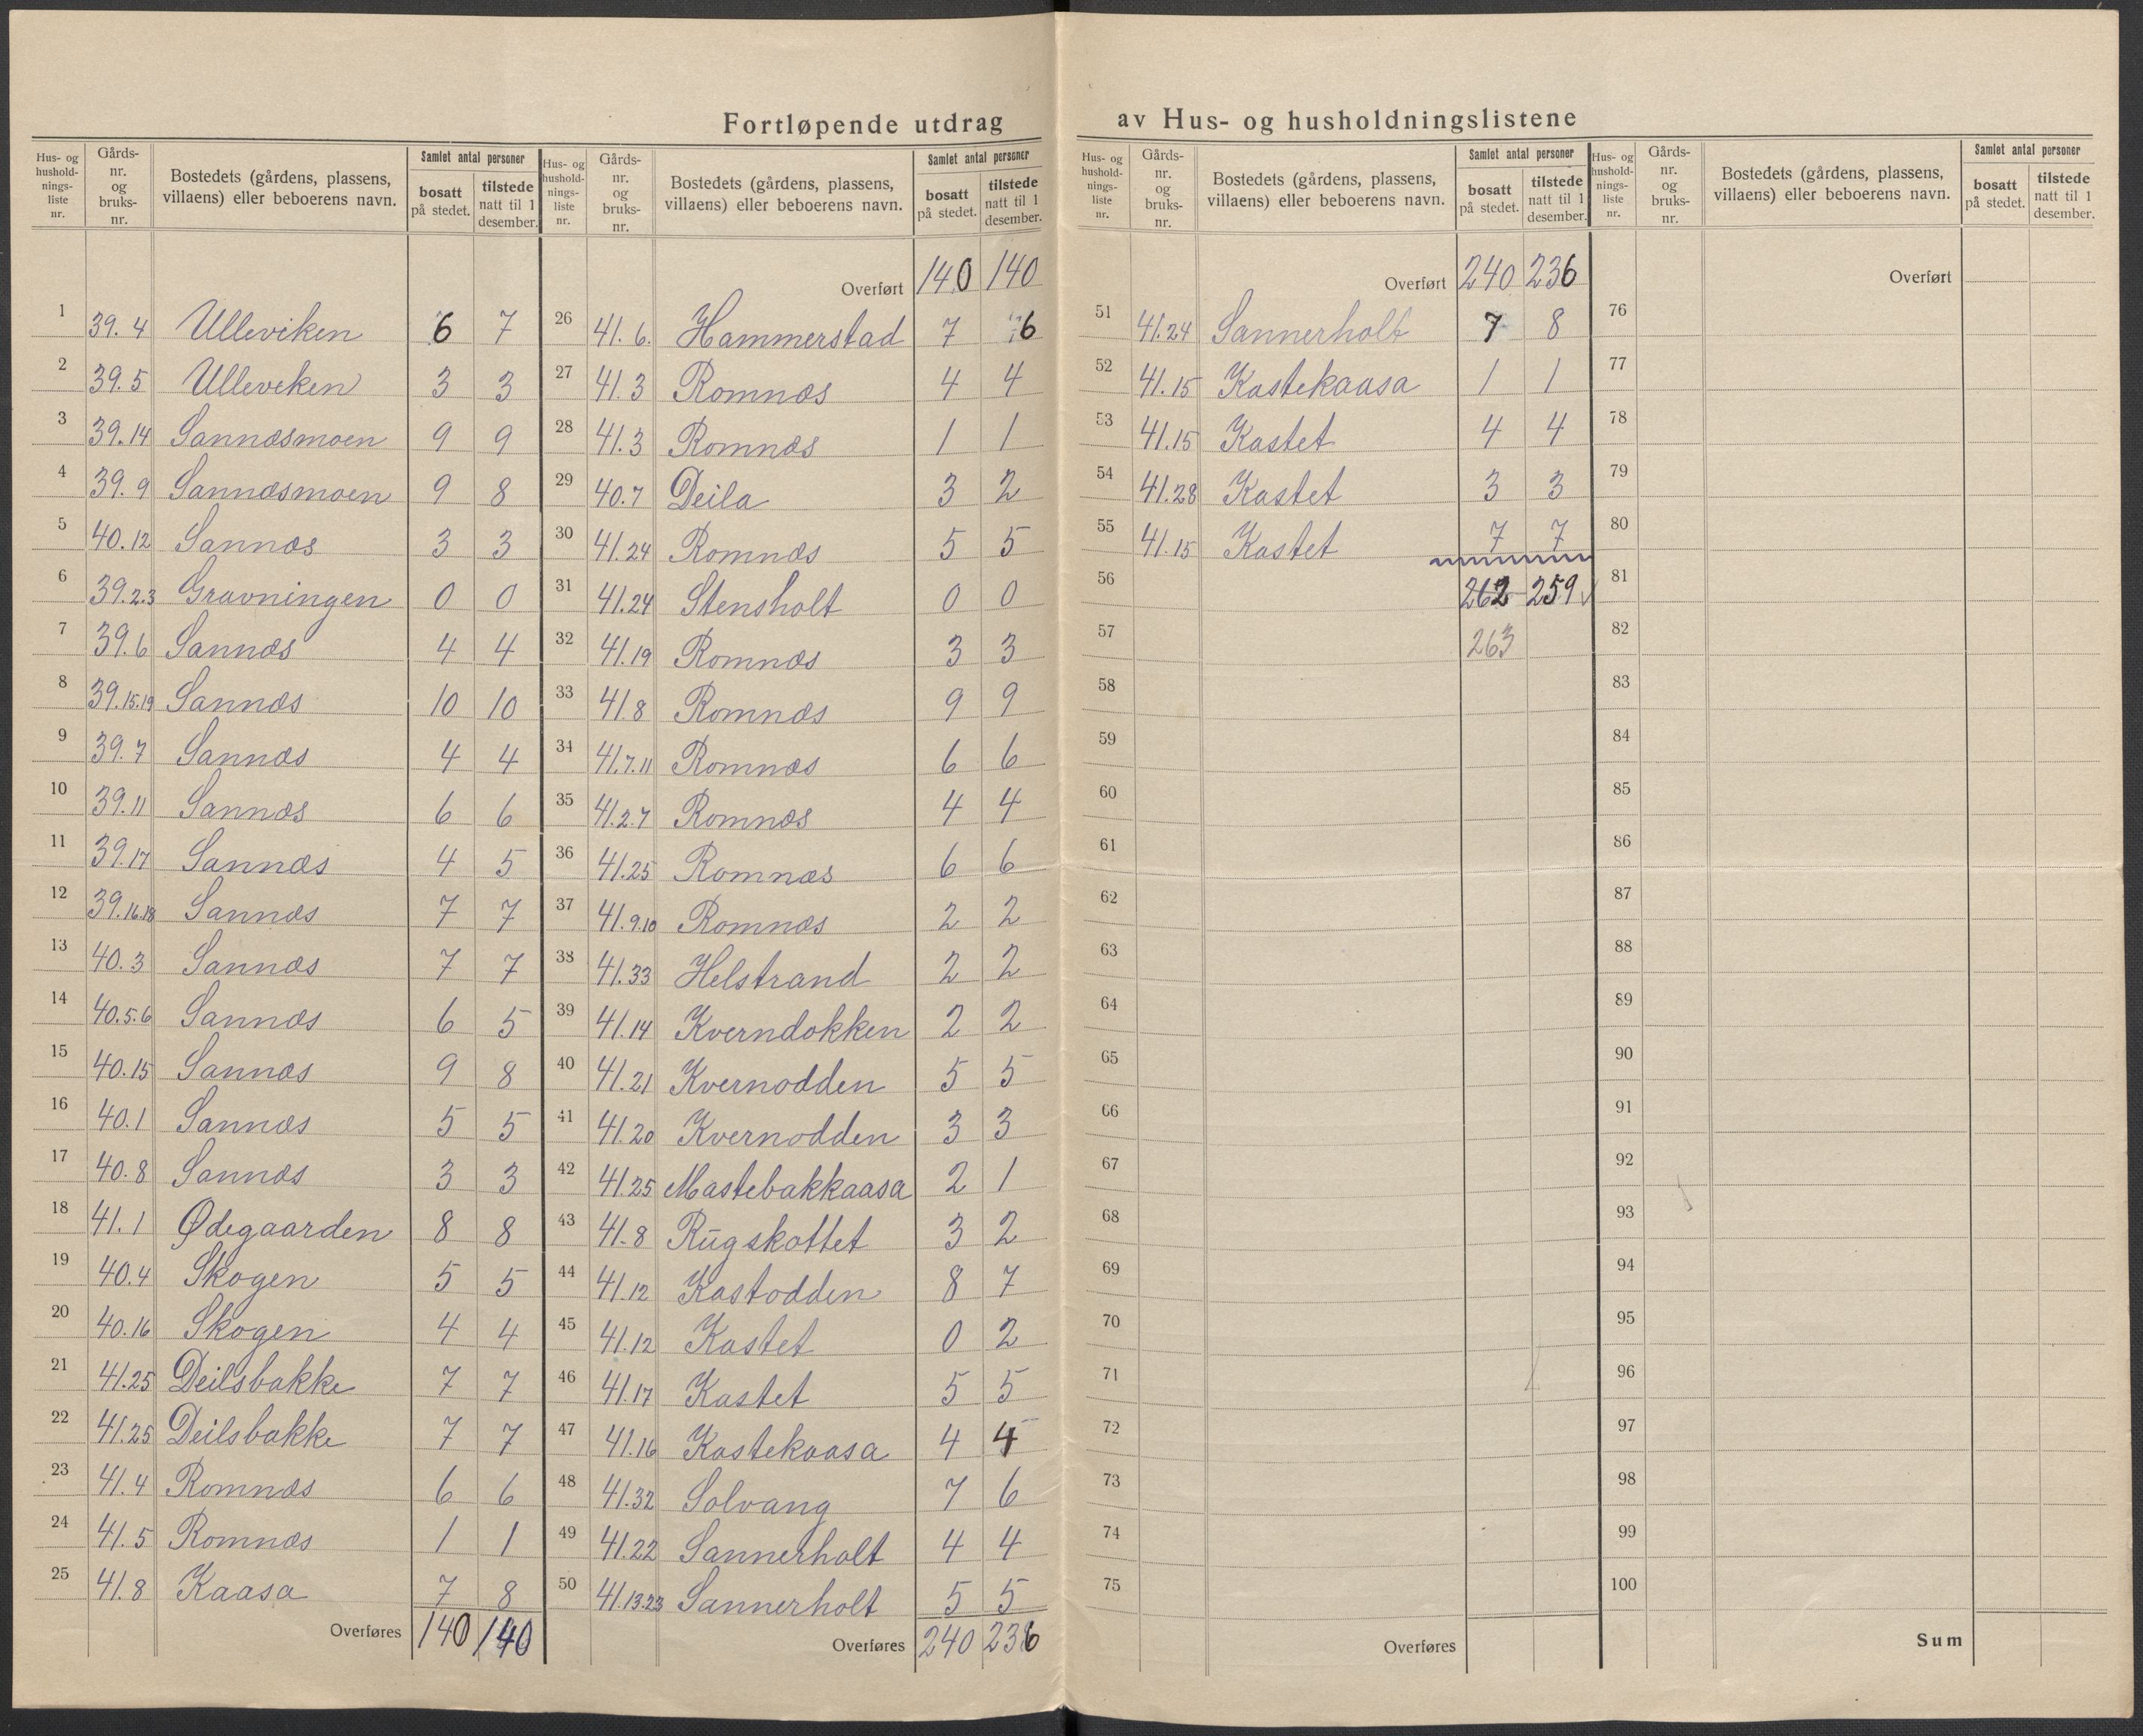 Fortløpende utdrag av Hus- og husholdningslistene
Hus- og husholdningsliste nr. | Gårds- nr. og bruks- nr. | Bostedets (gårdens, plassens, villaens) eller beboerens navn. | Samlet antal personer | bosatt på stedet. | tilstede natt til 1 desember.
1 39.4 Ulleviken 6 7
2 39.5 Ulleveken 3 3
3 39.14 Sannæsmoen 9 9
4 39.9 Sannæsmoen 9 8
5 40.12 Sannæs 3 3
6 39.2.3 Gravningen 0 0
7 39.6 Sannæs 4 4
8 39.15.19 Sannæs 10 10
9 39.7 Sannæs 4 4
10 39.11 Sannæs 6 6
11 39.17 Sannæs 4 5
12 39.16.18 Sannæs 7 7
13 40.3 Sannæs 7 7
14 40.5.6 Sannæs 6 5
15 40.15 Sannæs 9 8
16 40.1 Sannæs 5 5
17 40.8 Sannæs 3 3
18 41.1 Ødegaarden 8 8
19 40.4 Skogen 5 5
20 40.16 Skogen 4 4
21 41.25 Deilsbakke 7 7
22 41.25 Deilsbakke 7 7
23 41.4 Romnæs 6 6
24 41.5 Romnæs 1 1
25 41.8 Kaasa 7 8
Overføres 140 140
Hus- og husholdningsliste nr. | Gårds- nr. og bruks- nr. | Bostedets (gårdens, plassens, villaens) eller beboerens navn. | Samlet antal personer | bosatt på stedet. | tilstede natt til 1 desember.
Overført 140 140
26 41.6. Hammerstad 7 6
27 41.3 Romnæs 4 4
28 41.3 Romnæs 1 1
29 40.7 Deila 3 2
30 41.24 Romnæs 5 5
31 41.24 Stensholt 0 0
32 41.19 Romnæs 3 3
33 41.8 Romnæs 9 9
34 41.7.11 Romnæs 6 6
35 41.2.7 Romnæs 4 4
36 41.25 Romnæs 6 6
37 41.9.10 Romnæs 2 2
38 41.33 Helstrand 2 2
39 41.14 Kverndokken 2 2
40 41.21 Kvernodden 5 5
41 41.20 Kvernodden 3 3
42 41.25 Mastebakkaasa 2 1
43 41.8 Rugskottet 3 2
44 41.12 Kastodden 8 7
45 41.12 Kastet 0 2
46 41.17 Kastet 5 5
47 41.16 Kastekaasa 4 4
48 41.32 Solvang 7 6
49 41.22 Sannerholt 4 4
50 41.13.23 Sannerholt 5 5
Overføres 240 236
Hus- og husholdningsliste nr. | Gårds- nr. og bruks- nr. | Bostedets (gårdens, plassens, villaens) eller beboerens navn. | Samlet antal personer | bosatt på stedet. | tilstede natt til 1 desember.
Overført 240 236
51 41.24 Sannerholt 7 8
52 41.15 Kastekaasa 1 1
53 41.15 Kastet 4 4
54 41.28 Kastet 3 3
55 41.15 Kastet 7 7
56 262 259
57 263
58
59
60
61
62
63
64
65
66
67
68
69
70
71
72
73
74
75
Overføres
Hus- og husholdningsliste nr. | Gårds- nr. og bruks- nr. | Bostedets (gårdens, plassens, villaens) eller beboerens navn. | Samlet antal personer | bosatt på stedet. | tilstede natt til 1 desember.
Overført
76
77
78
79
80
81
82
83
84
85
86
87
88
89
90
91
92
93
94
95
96
97
98
99
100
Sum